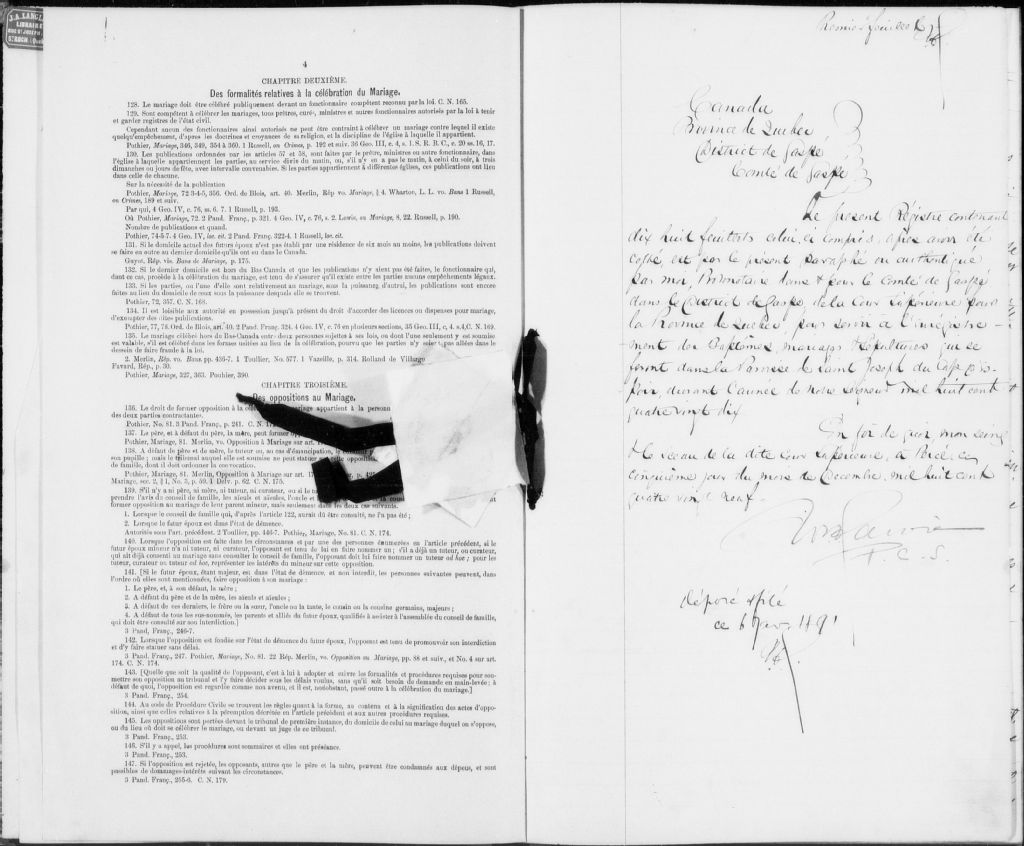 J. A. LANGL
LIBRAIRE
RUE ST JOSEPH
ST ROCH
4
CHAPITRE DEUXIÈME.
Des formalités relatives à la célébration du Mariage.
128. Le mariage doit être célébré publiquement devant un fonctionnaire compétent reconnu par la loi. C. N. 165.
129. Sont compétents à célébrer les mariages, tous prêtres, curés, ministres et autres fonctionnaires autorisés par la loi à tenir
et garder registres de l'état civil.
Cependant aucun des fonctionnaires ainsi autorisés ne peut être contraint à célébrer un mariage contre lequel il existe
quelqu'empêchement, d'après les doctrines et croyances de sa religion, et la discipline de l'église à laquelle il appartient.
Pothier, Mariage, 346, 349, 354 à 360. 1 Russell, on Crimes, p. 192 et suiv. 36 Geo. III, c. 4, s. 1. S. R. B. C., c. 20 ss. 16, 17.
130. Les publications ordonnées par les articles 57 et 58, sont faites par le prêtre, ministre ou autre fonctionnaire, dans
l'église à laquelle appartiennent les parties, au service divin du matin, ou, s'il n'y en a pas le matin, à celui du soir, à trois
dimanches ou jours de fête, avec intervalle convenables. Si les parties appartiennent à différentes églises, ces publications ont lieu
dans celle de chacune.
Sur la nécessité de la publication
Pothier, Mariage, 72 3-4-5, 356. Ord. de Blois, art. 40. Merlin, Rép vo. Mariage, § 4. Wharton, L. L. vo. Bans 1 Russell,
on Crimes, 189 et suiv.
Par qui, 4 Geo. IV, c. 76, ss. 6. 7. 1 Russell, p. 193.
Où Pothier, Mariage, 72. 2 Pand. Franç., p. 321. 4 Geo. IV, c. 76, s. 2. Lewis, on Mariage, 8, 22. Russell, p. 190.
Nombre de publications et quand.
Pothier, 74-5-7. 4 Geo. IV, loc. cit. 2 Pand. Franç. 322-4. 1 Russell, loc. cit.
131. Si le domicile actuel des futurs époux n'est pas établi par une résidence de six mois au moins, les publications doivent
se faire en outre au dernier domicile qu'ils ont eu dans le Canada.
Guyot, Rép. vis. Bans de Mariage, p. 175.
132. Si le dernier domicile est hors du Bas Canada et que les publications n'y aient pas été faites, le fonctionnaire qui,
dans ce cas, procède à la célébration du mariage, est tenu de s'assurer qu'il n'existe entre les parties aucuns empêchements légaux.
133. Si les parties, ou l'une d'elles sont relativement au mariage, sous la puissance d'autrui, les publications sont encore
faites au lieu du domicile de ceux sous la puissance desquels elle se trouvent.
Pothier, 72, 357. C. N. 168.
134. Il est loisible aux autorité en possession jusqu'à présent du droit d'accorder des licences ou dispenses pour mariage,
d'exempter des dites publications.
Pothier, 77, 78. Ord. de Blois, art. 40. 2 Pand. Franç. 324. 4 Geo. IV, c. 76 en plusieurs sections, 35 Geo. III, c. 4. s.4, C. N. 169.
135. Le mariage célébré hors du Bas-Canada entre deux personnes sujettes à ses lois, ou dont l'une seulement y est soumise
est valable, s'il est célébré dans les formes usitées au lieu de la célébration, pourvu que les parties n'y soient pas allées dans le
dessein de faire fraude à la loi.
2. Merlin, Rép. vo. Bans. pp. 436-7. 1 Toullier, No. 577. 1 Vazeille, p. 314. Rolland de Villarg
Favard, Rép., p. 30.
Pothier, Mariage, 327, 363. Pouhier, 390.
CHAPITRE TROISIÈME.
Des oppositions au Mariage.
136. Le droit de former opposition à la célé mariage appartient à la personn
des deux parties contractantes.
Pothier, No. 81. 3 Pand. Franç., p. 241. C. N.
137. Le père, et à défaut du père, la mère, peut former
Pothier, Mariage, 81. Merlin, vo. Opposition à Mariage sur art.
138. A défaut de père et de mère, le tuteur ou, au cas d'émancipation, le
son pupille; mais le tribunal auquel elle est soumise ne peut statuer
de famille, dont il doit ordonner la convocation.
Pothier, Mariage, 81. Merlin, Opposition à Mariage sur art.
Mariage, sec. 2, § 1, No. 3, p. 59. 1 Delv. p. 62. C. N. 175.
139. S'il n'y a ni père, ni mère, ni tuteur, ni curateur, ou si le
prendre l'avis du conseil de famille, les aïeuls et aïeules, l'oncle et
former opposition au mariage de leur parent mineur, mais seulement dans les deux cas suivants.
1. Lorsque le conseil de famille qui, d'après l'article 122, aurait dû être consulté, ne l'a pas été;
2. Lorsque le futur époux est dans l'état de démence.
Autorités sous l'art. précédent. 2 Toullier, pp. 446-7. Pothier, Mariage, No. 81. C. N. 174.
140. Lorsque l'opposition est faite dans les circonstances et par une des personnes énumérées en l'article précédent, si le
futur époux mineur n'a ni tuteur, ni curateur, l'opposant est tenu de lui en faire nommer un; s'il a déjà un tuteur, ou curateur,
qui ait déjà consenti au mariage sans consulter le conseil de famille, l'opposant doit lui faire nommer un tuteur ad hoc; pour les
tuteur, curateur ou tuteur ad hoc, représenter les intérêts du mineur sur cette opposition.
141. [Si le futur époux, étant majeur, est dans l'état de démence, et non interdit, les personnes suivantes peuvent, dans
l'ordre où elles sont mentionnées, faire opposition à son mariage:
1. Le père, et, à son défaut, la mère;
2. A défaut du père et de la mère, les aïeuls et aïeules;
3. A défaut de ces derniers, le frère ou la sœur, l'oncle ou la tante, le cousin ou la cousine germains, majeurs;
4. A défaut de tous les sus-nommés, les parents et alliés du futur époux, qualifiés à assister à l'assemblée du conseil de famille,
qui doit être consulté sur son interdiction.]
3 Pand. Franç., 246-7.
142. Lorsque l'opposition est fondée sur l'état de démence du futur époux, l'opposant est tenu de promouvoir son interdiction
et d'y faire statuer sans délai.
3 Pand. Franç., 247. Pothier, Mariage, No. 81. 22 Rép. Merlin, vo. Opposition au Mariage, pp. 88 et suiv., et No. 4 sur art.
174. C. N. 174.
143. [Quelque soit la qualité de l'opposant, c'est à lui à adopter et suivre les formalités et procédures requises pour sou-
mettre son opposition au tribunal et l'y faire décider sous les délais voulus, sans qu'il soit besoin de demande en main-levée: à
défaut de quoi, l'opposition est regardée comme non avenu, et il est, nonobstant, passé outre à la célébration du mariage.]
3 Pand. Franç., 254.
144. Au code de Procédure Civile se trouvent les règles quant à la forme, au contenu et à la signification des actes d'oppo-
sition, ainsi que celles relatives à la péremption décrétée en l'article précédent et aux autres procédures requises.
145. Les oppositions sont portées devant le tribunal de première instance, du domicile de celui au mariage duquel on s'oppose,
ou du lieu où doit se célébrer le mariage, ou devant un juge de ce tribunal.
3 Pand. Franç., 253.
146. S'il y a appel, les procédures sont sommaires et elles ont préséance.
3 Pand. Franç., 253.
147. Si l'opposition est rejetée, les opposants, autres que le père et la mère, peuvent être condamnés aux dépens, et sont
passibles de dommages-intérêts suivant les circonstances.
3 Pand. Franç., 255-6. C. N. 179.
Premier feuillet
Canada
Province de Quebec
District de Gaspé
Comté de Gaspé
Le présent Régistre contenant
dix huit feuillets celui, ci compris, après avoir été
coté, est par le présent paraphé ou authentiqué
par moi, Protonotaire dans & pour le Comté de Gaspé
dans le District de Gaspé, de la Cour Supérieure pour
la Province de Quebec, pour servir à l'enrégistre-
ment des Baptêmes, mariages & Sépultures qui se
feront dans la Paroisse de Saint Joseph du Cap d'Es-
poir, durant l'année de notre seigneur mil huit cent
quatre vingt dix
En foi de quoi, mon seing
& le sceau de la dite Cour Supérieure, à Percé, ce
cinquième jour du mois de Décembre, mil huit cent
quatre vingt neuf.
P. C. S.
déposé & filé
ce 6 Janv. 1891